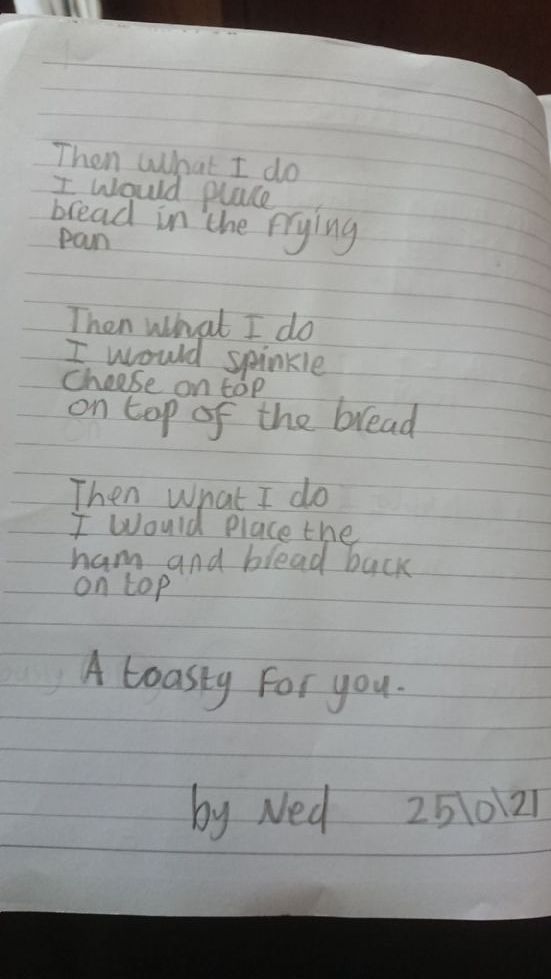 Then what I do
I would place
bread in the frying
pan
Then what I do
I would spinkle
cheese on top
on top of the bread
Then what I do
I would place the
ham and bread back
on top
A toasty for you.
by Ned 25\0\21